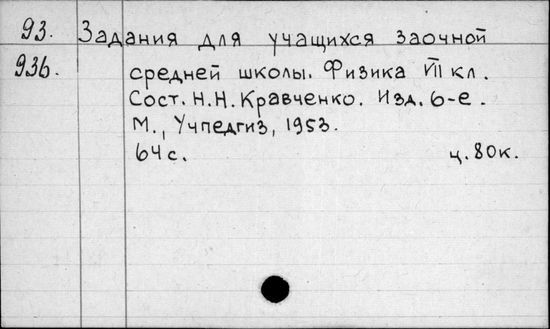 93. Задания для учащихся заочной
936. средней школы. Физика VII кл.
Сост. Н.Н. Кравченко. Изд. 6-е.
М., Учпедгиз, 1953.
64 с. ц. 80к.